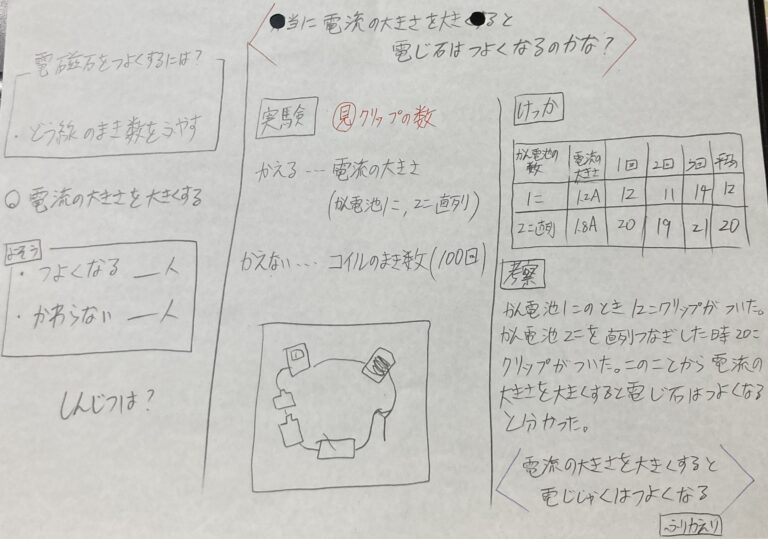 当に電流の大きさを大きくすると
電じ石はつよくなるのかな?
電磁石をつよくするには?
・どう線のまき数をふやす
○電流の大きさを大きくする
よそう
・つよくなる __人
・かわらない __人
しんじつは?
実験 見 クリップの数
かえる…電流の大きさ
(かん電池1こ,2こ直列)
かえない…コイルのまき数(100回)
けっか
かん電池の数 電流の大きさ 1回 2回 3回 平均
1こ 1.2A 12 11 14 12
2こ直列 1.8A 20 19 21 20
考察
かん電池1このとき12こクリップがついた。
かん電池2こを直列つなぎした時20こ
クリップがついた。このことから電流の
大きさを大きくすると電じ石はつよくなる
と分かった。
電流の大きさを大きくすると
電じしゃくはつよくなる
ふりかえり